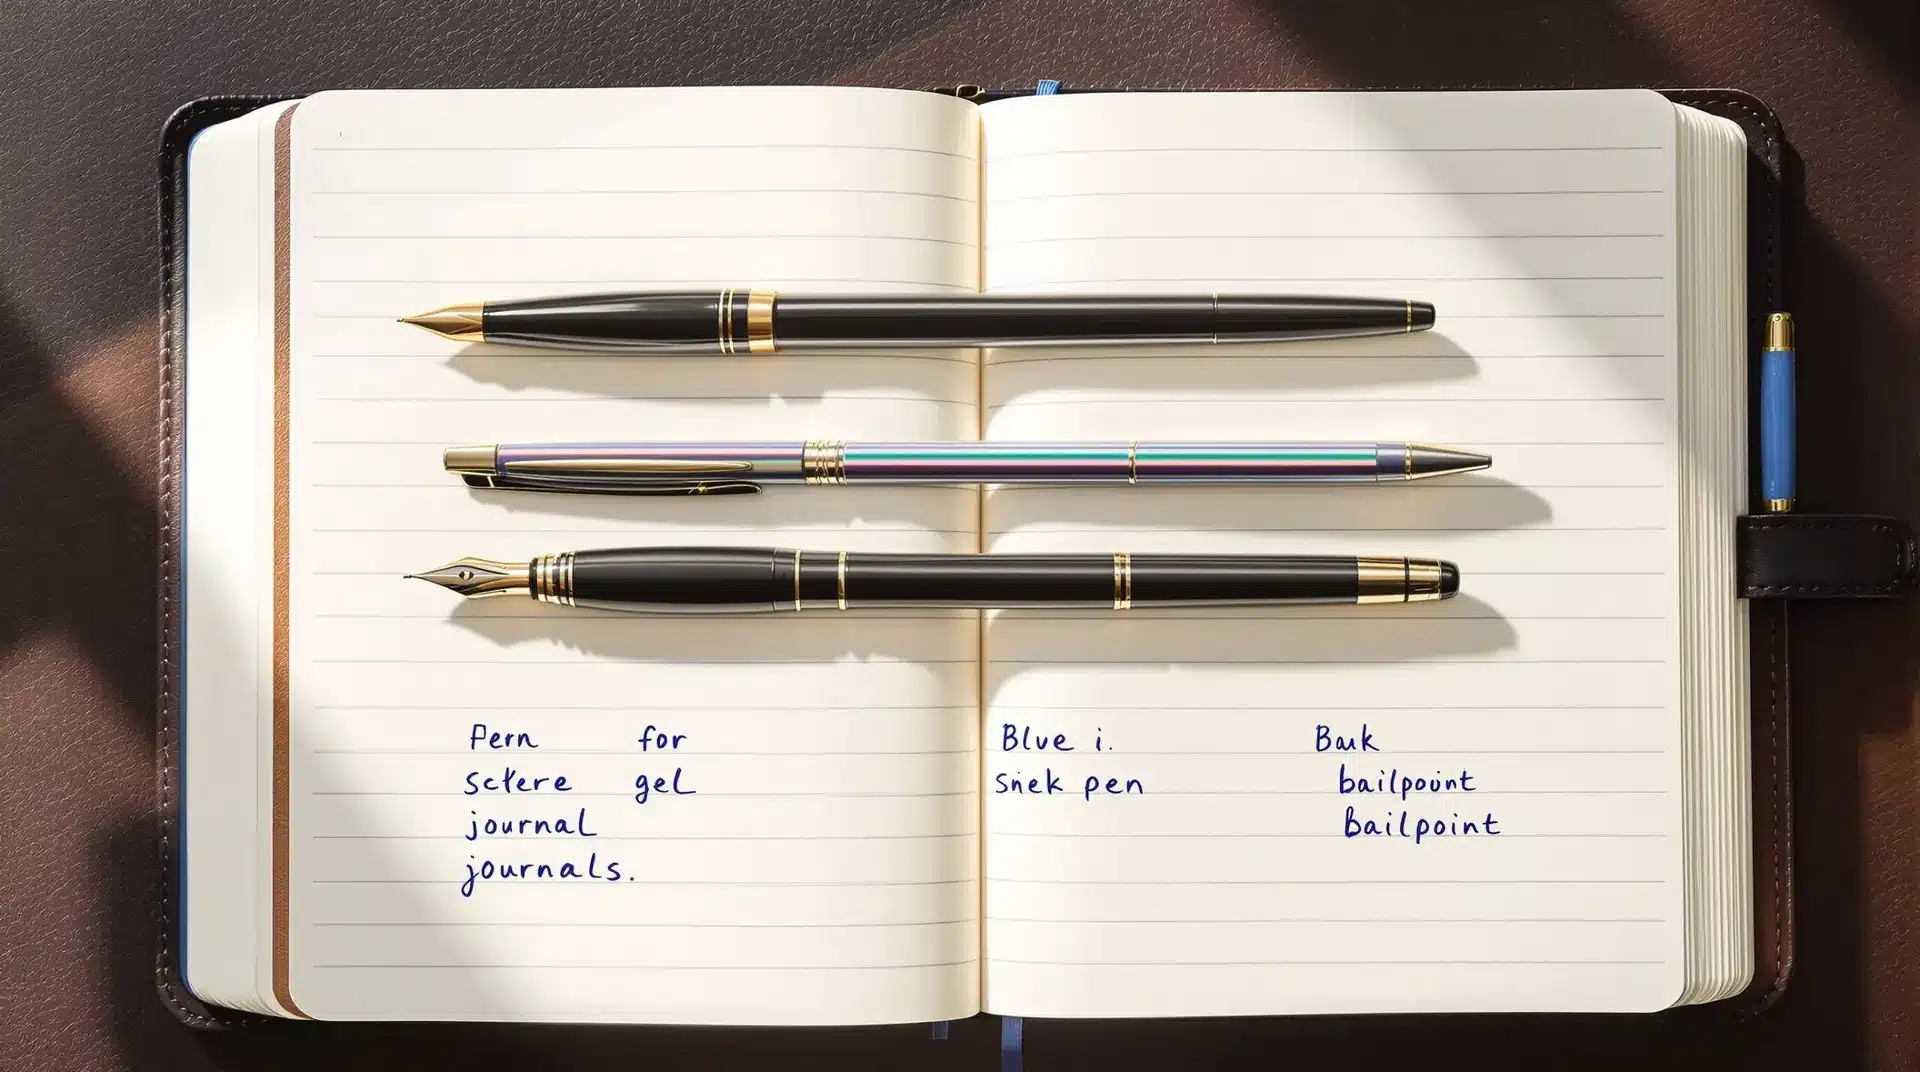 Pern for
sctere gel
journal
journals.
Blue i.
snek pen
Bauk
bailpount
Bailpoint